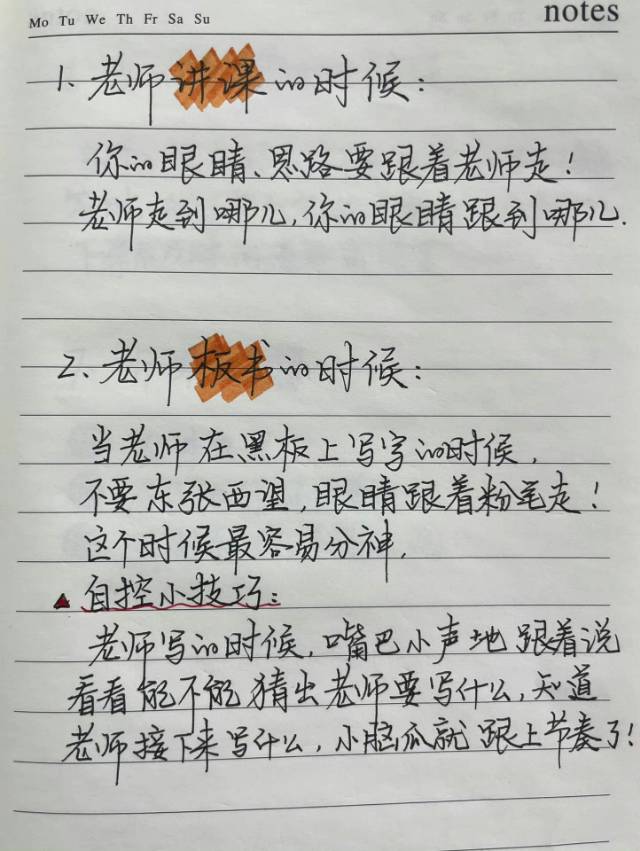 Mo Tu We Th Fr Sa Su
notes
1、老师讲课的时候：
你的眼睛、思路要跟着老师走！
老师走到哪儿，你的眼睛跟到哪儿.
2、老师板书的时候：
当老师在黑板上写字的时候，
不要东张西望，眼睛跟着粉笔走！
这个时候最容易分神，
▲ 自控小技巧：
老师写的时候，嘴巴小声地跟着说
看看能不能猜出老师要写什么，知道
老师接下来写什么，小脑瓜就跟上节奏了！